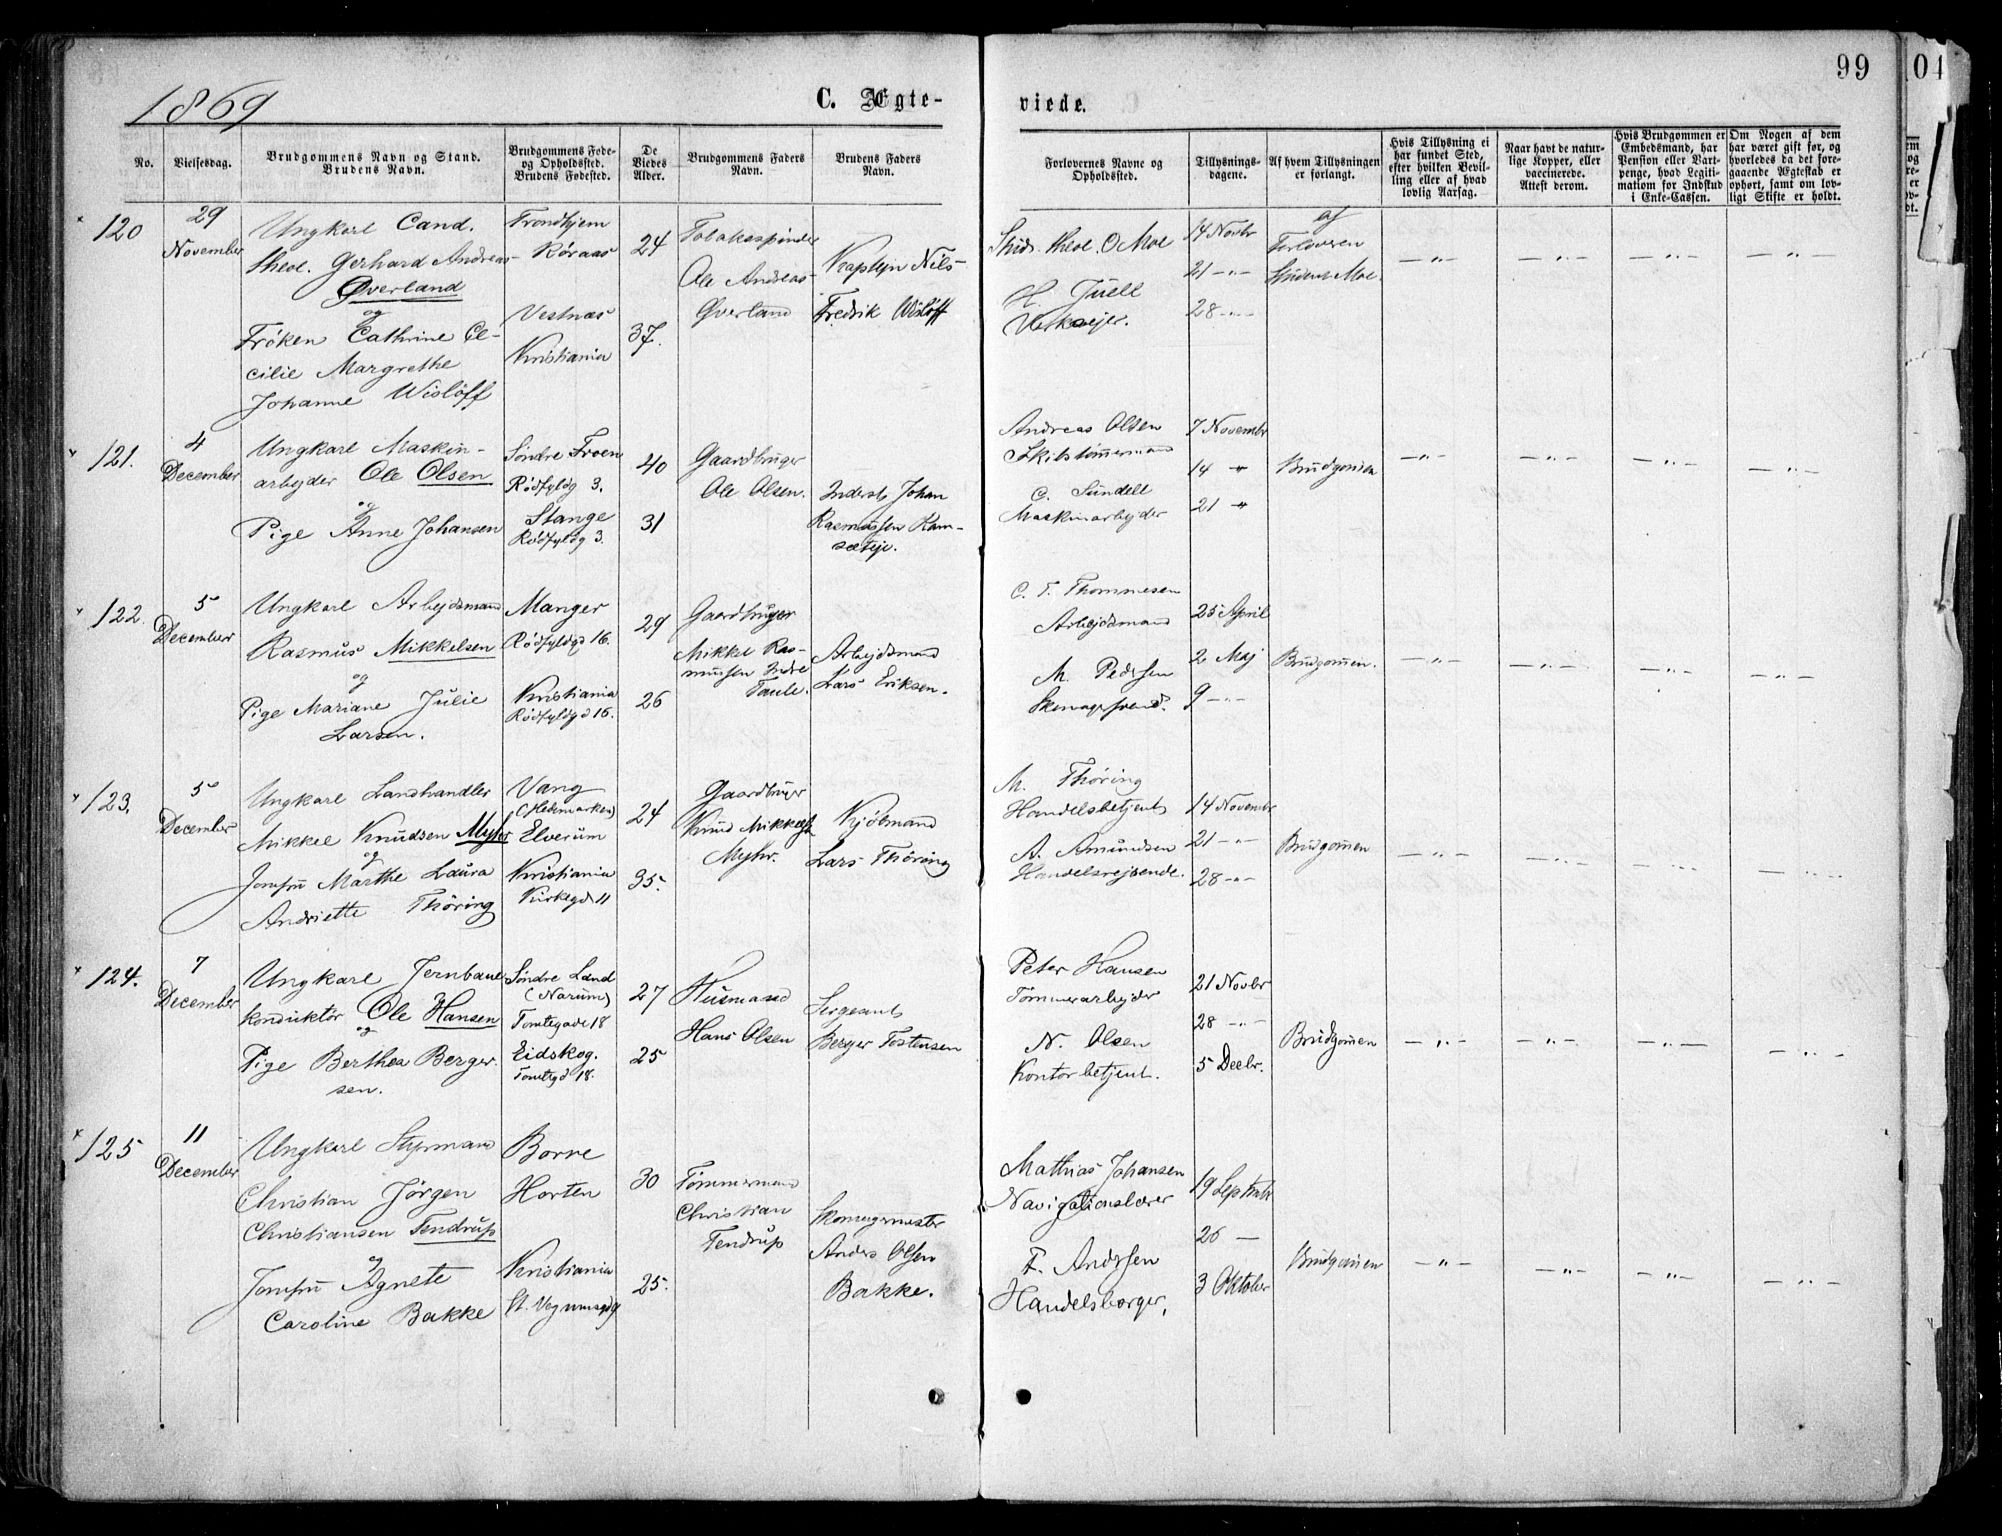 99
1869
C. Ægte-
viede.
No.
Vielsesdag.
Brudgommens Navn og Stand.
Brudens Navn.
Brudgommens Føde-
og Opholdssted.
Brudens Fødested.
De
Viedes
Alder.
Brudgommens Faders
Navn.
Brudens Faders
Navn.
Forlovernes Navne og
Opholdssted.
Tillysnings-
dagene.
Af hvem Tillysningen
er forlangt.
Hvis Tillysning ei
har fundet Sted,
efter hvilken Bevil-
ling eller af hvad
lovlig Aarsag.
Naar havt de natur-
lige Kopper, eller
vaccinerede.
Attest derom.
Hvis Brudgommen er
Embedsmand, har
Pension eller Vart-
penge, hvad Legiti-
mation for Indskud
i Enke-Cassen.
Om Nogen af dem
har været gift før, og
hvorledes da det fore-
gaaende Ægteskab er
ophørt, samt om lov-
ligt Skifte er holdt.
120
29
November
Ungkarl Cand.
theol. Gerhard Andreas
Øverland
og
Frøken Cathrine Ce-
cilie Margrethe
Johanne Wisløff
Trondhjem
Røraas
Vestnæs
Kristiania
24
37.
Tobakspinder
Ole Andreas
Øverland
Kaptejn Nils
Fredrik Wisløff
Stud. theol. O Moe
H. Juell
Verksejer.
14 Novbr
21 -„-
28 -„-
af
Forloveren
Student Moe.
-„- -„- -„- -„-
121.
4
December
Ungkarl Maskin-
arbejder Ole Olsen
og
Pige Anne Johansen
Søndre Froen
Rødfyldg 3.
Stange
Rødfyldg 3.
40
31
Gaardbruger
Ole Olsen.
Inderst Johan
Rasmussen Ram-
sæteje.
Andreas Olsen
Skibstømmermand
C. Sundell
Maskinarbejder
7 Novembr
14 „
21 „
Brudgomen
-„- -„- -„- -„-
122.
5
December
Ungkarl Arbejdsmand
Rasmus Mikkelsen
og
Pige Mariane Julie
Larsen.
Manger
Rødfyldgd 16.
Kristiania
Rødfyldgd 16.
29
26
Gaardbruger
Mikkel Ras-
mussen Indre
Taule.
Arbejdsmand
Lars Eriksen.
C. T. Thommesen
Arbejdsmand
M. Pedersen
Skomagersvend.
25 April
2 Maj
9 -„-
Brudgomen.
-„- -„- -„- -„-
123.
5
December
Ungkarl Landhandler
Mikkel Knudsen Myhr
og
Jomfru Marthe Laura
Andriette Thøring
Vang
(Hedemarken)
Elverum
Kristiania
Kirkegd 11
24
35.
Gaardbruger
Knud Mikkels
Myhr.
Kjøbmand
Lars Thøring
M. Thøring
Handelsbetjent
A. Amundsen
Handelsrejsende.
14 Novembr
21 -„-
28 -„-
Brudgomen
-„- -„- -„- -„-
124.
7
December
Ungkarl Jernbane
konduktør Ole Hansen
og
Pige Berthea Berger-
sen.
Søndre Land
(Narum)
Tomtegade 18
Eidskog.
Tomtegd 18.
27
25
Husmand
Hans Olsen
Sergeant
Berger Tostensen
Peter Hansen
Tømmerarbejder
N. Olsen
Kontorbetjent.
21 Novbr
28 -„-
5 Decbr.
Brudgomen
-„- -„- -„- -„-
125
11
December
Ungkarl Styrmand
Christian Jørgen
Christiansen Tendrup
og
Jomfru Agnete
Caroline Bakke
Borre
Horten
Kristiania
30
25.
Tømmermand
Christian
Tendrup
Skomagermester
Anders Olsen
Bakke.
Mathias Johansen
Navigationslærer
F. Andersen
Handelsborger,
19 Septembr
26 —
3 Oktober
Brudgomen
-„- -„- -„- -„-